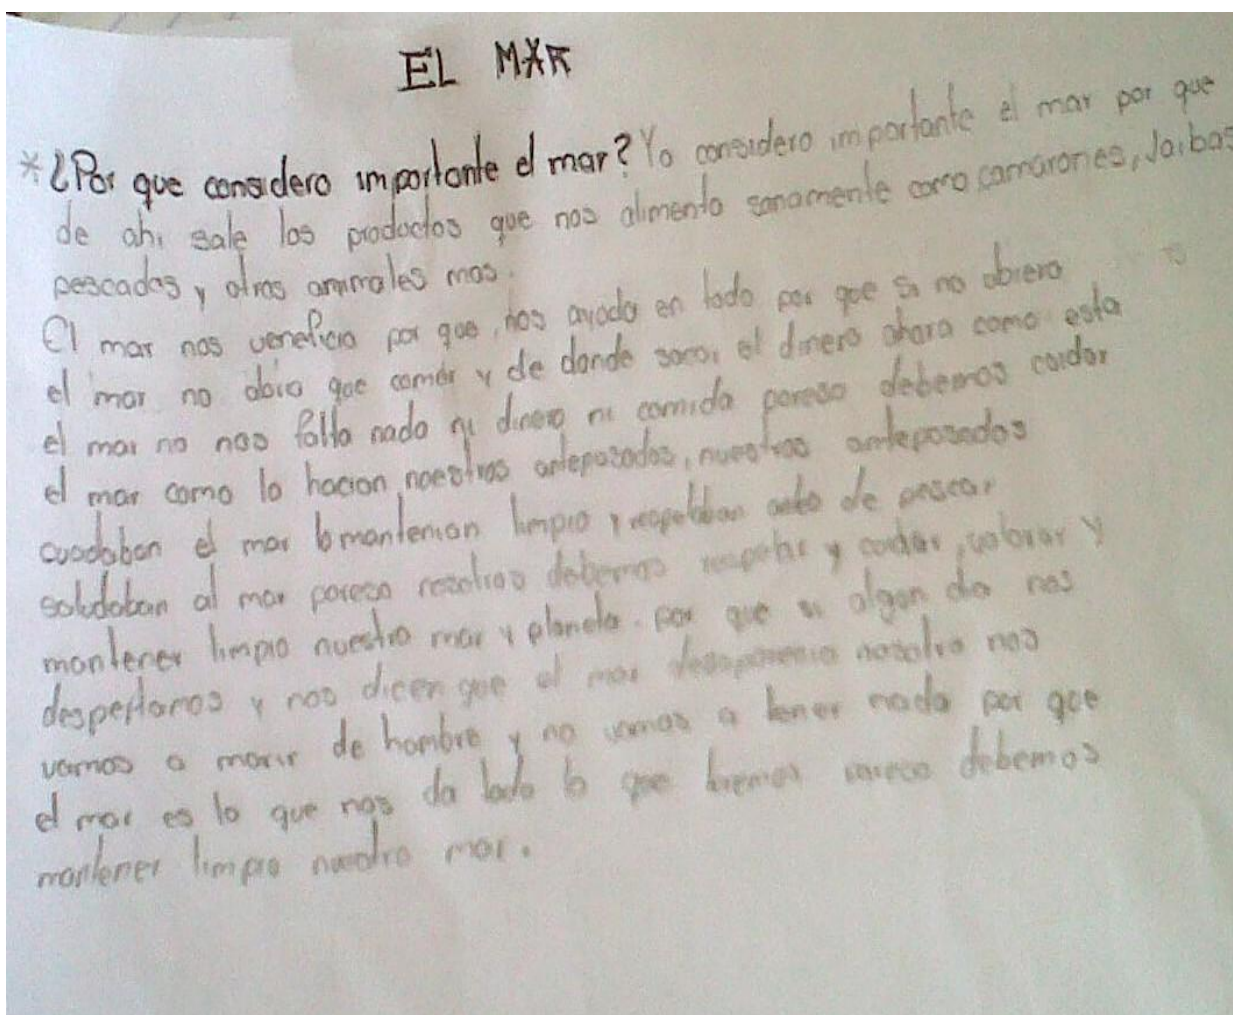 EL MAR
*¿Por que considero importante el mar? Yo considero importante el mar por que
de ahi sale los productos que nos alimenta sanamente como camarones, Jaibas
pescados y otros animales mas.
El mar nos veneficia por que nos ayuda en todo por que si no ubiera
el mar no abia que comer y de donde sacar el dinero ahora como esta
el mar no nos falta nada ni dinero ni comida poreso debemos cuidar
el mar como lo hacian nuestros antepasados, nuestros antepasados
cuadaban el mar lo mantenian limpio y respetaban antes de pescar
saludaban al mar poreso nosotros debemos respetar y cuidar, valorar y
mantener limpio nuestro mar y planeta. por que si algun dia nos
despertamos y nos dicen que el mar nosotro nos
vamos a morir de hambre y no vamos a tener nada por que
el mar es lo que nos da todo lo que debemos
mantener limpio nuestro mar.